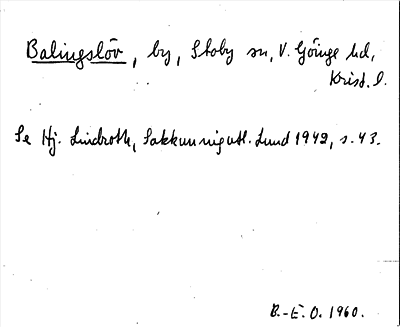 Balingslöv, by, Stoby sn, V. Göinge hd,
Krist. l.
Se Hj. Lindroth, Sakkunnigutl. Lund 1942, s. 43.
B.-E. O. 1960.